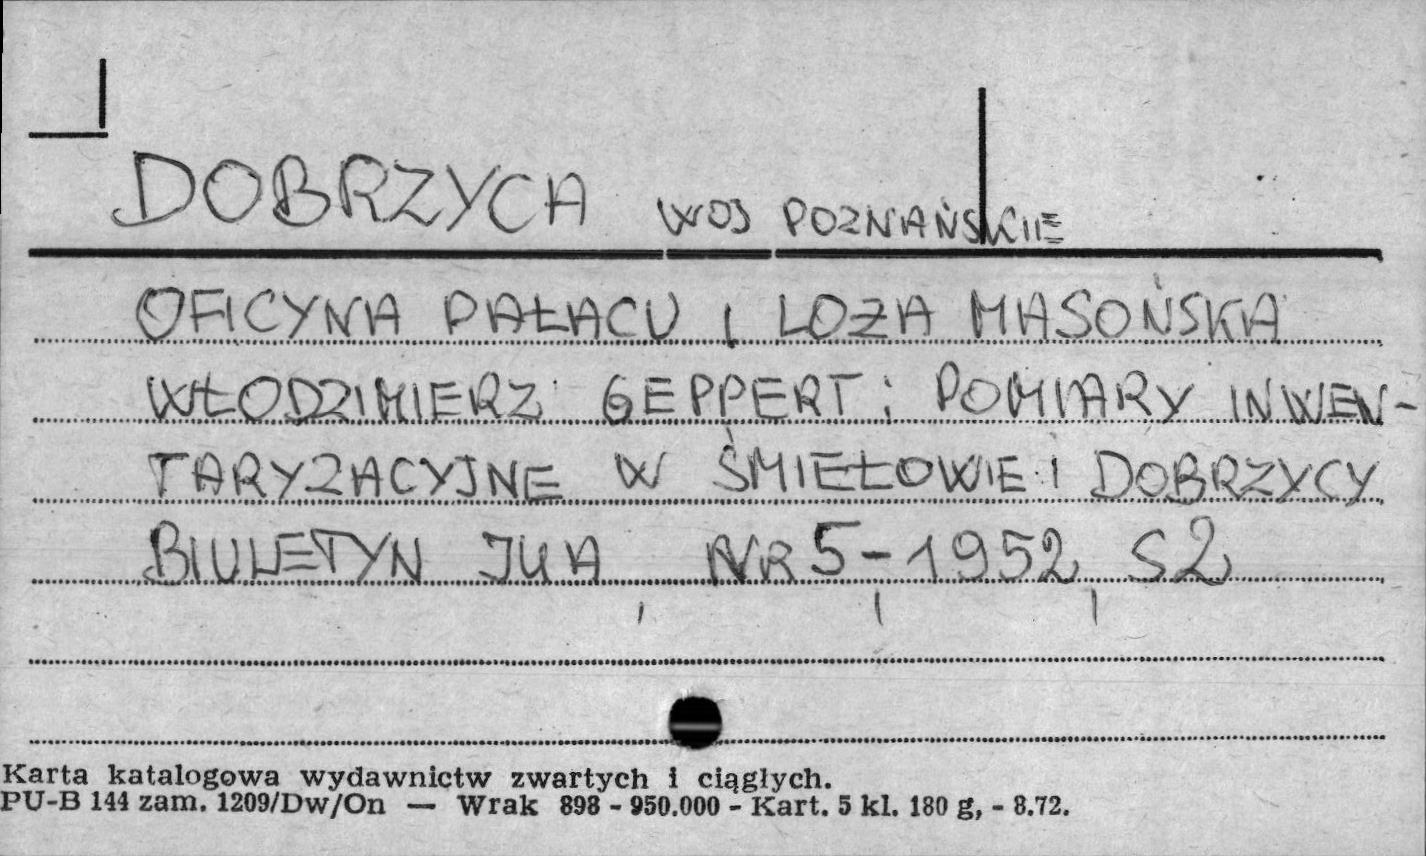 DOBRZYCA WOJ POZNAŃSKIE
OFICYNA PAŁACU I LOŻA MASOŃSKA
WŁODZIMIERZ GEPPERT: POMIARY INWEN-
TARYZACYJNE W ŚMIEŁOWIE I DOBRZYCY
BIULETYN JUA NR 5-1952 S2
Karta katalogowa wydawnictw zwartych i ciągłych.
PU-B 144 zam. 1209/Dw/On — Wrak 898 - 950.000 - Kart. 5 kl. 180 g, - 8.72.